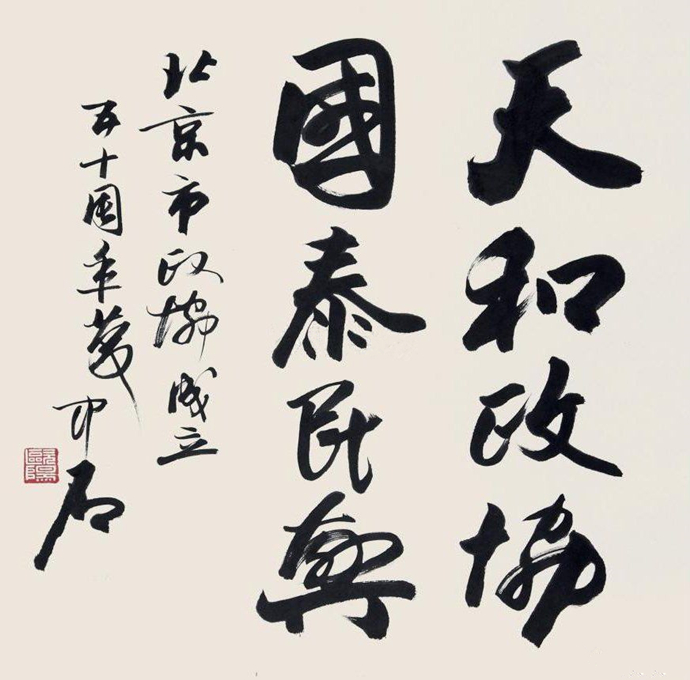 天和政協
國泰民興
北京市政協成立
五十周年夢
中石
歐陽